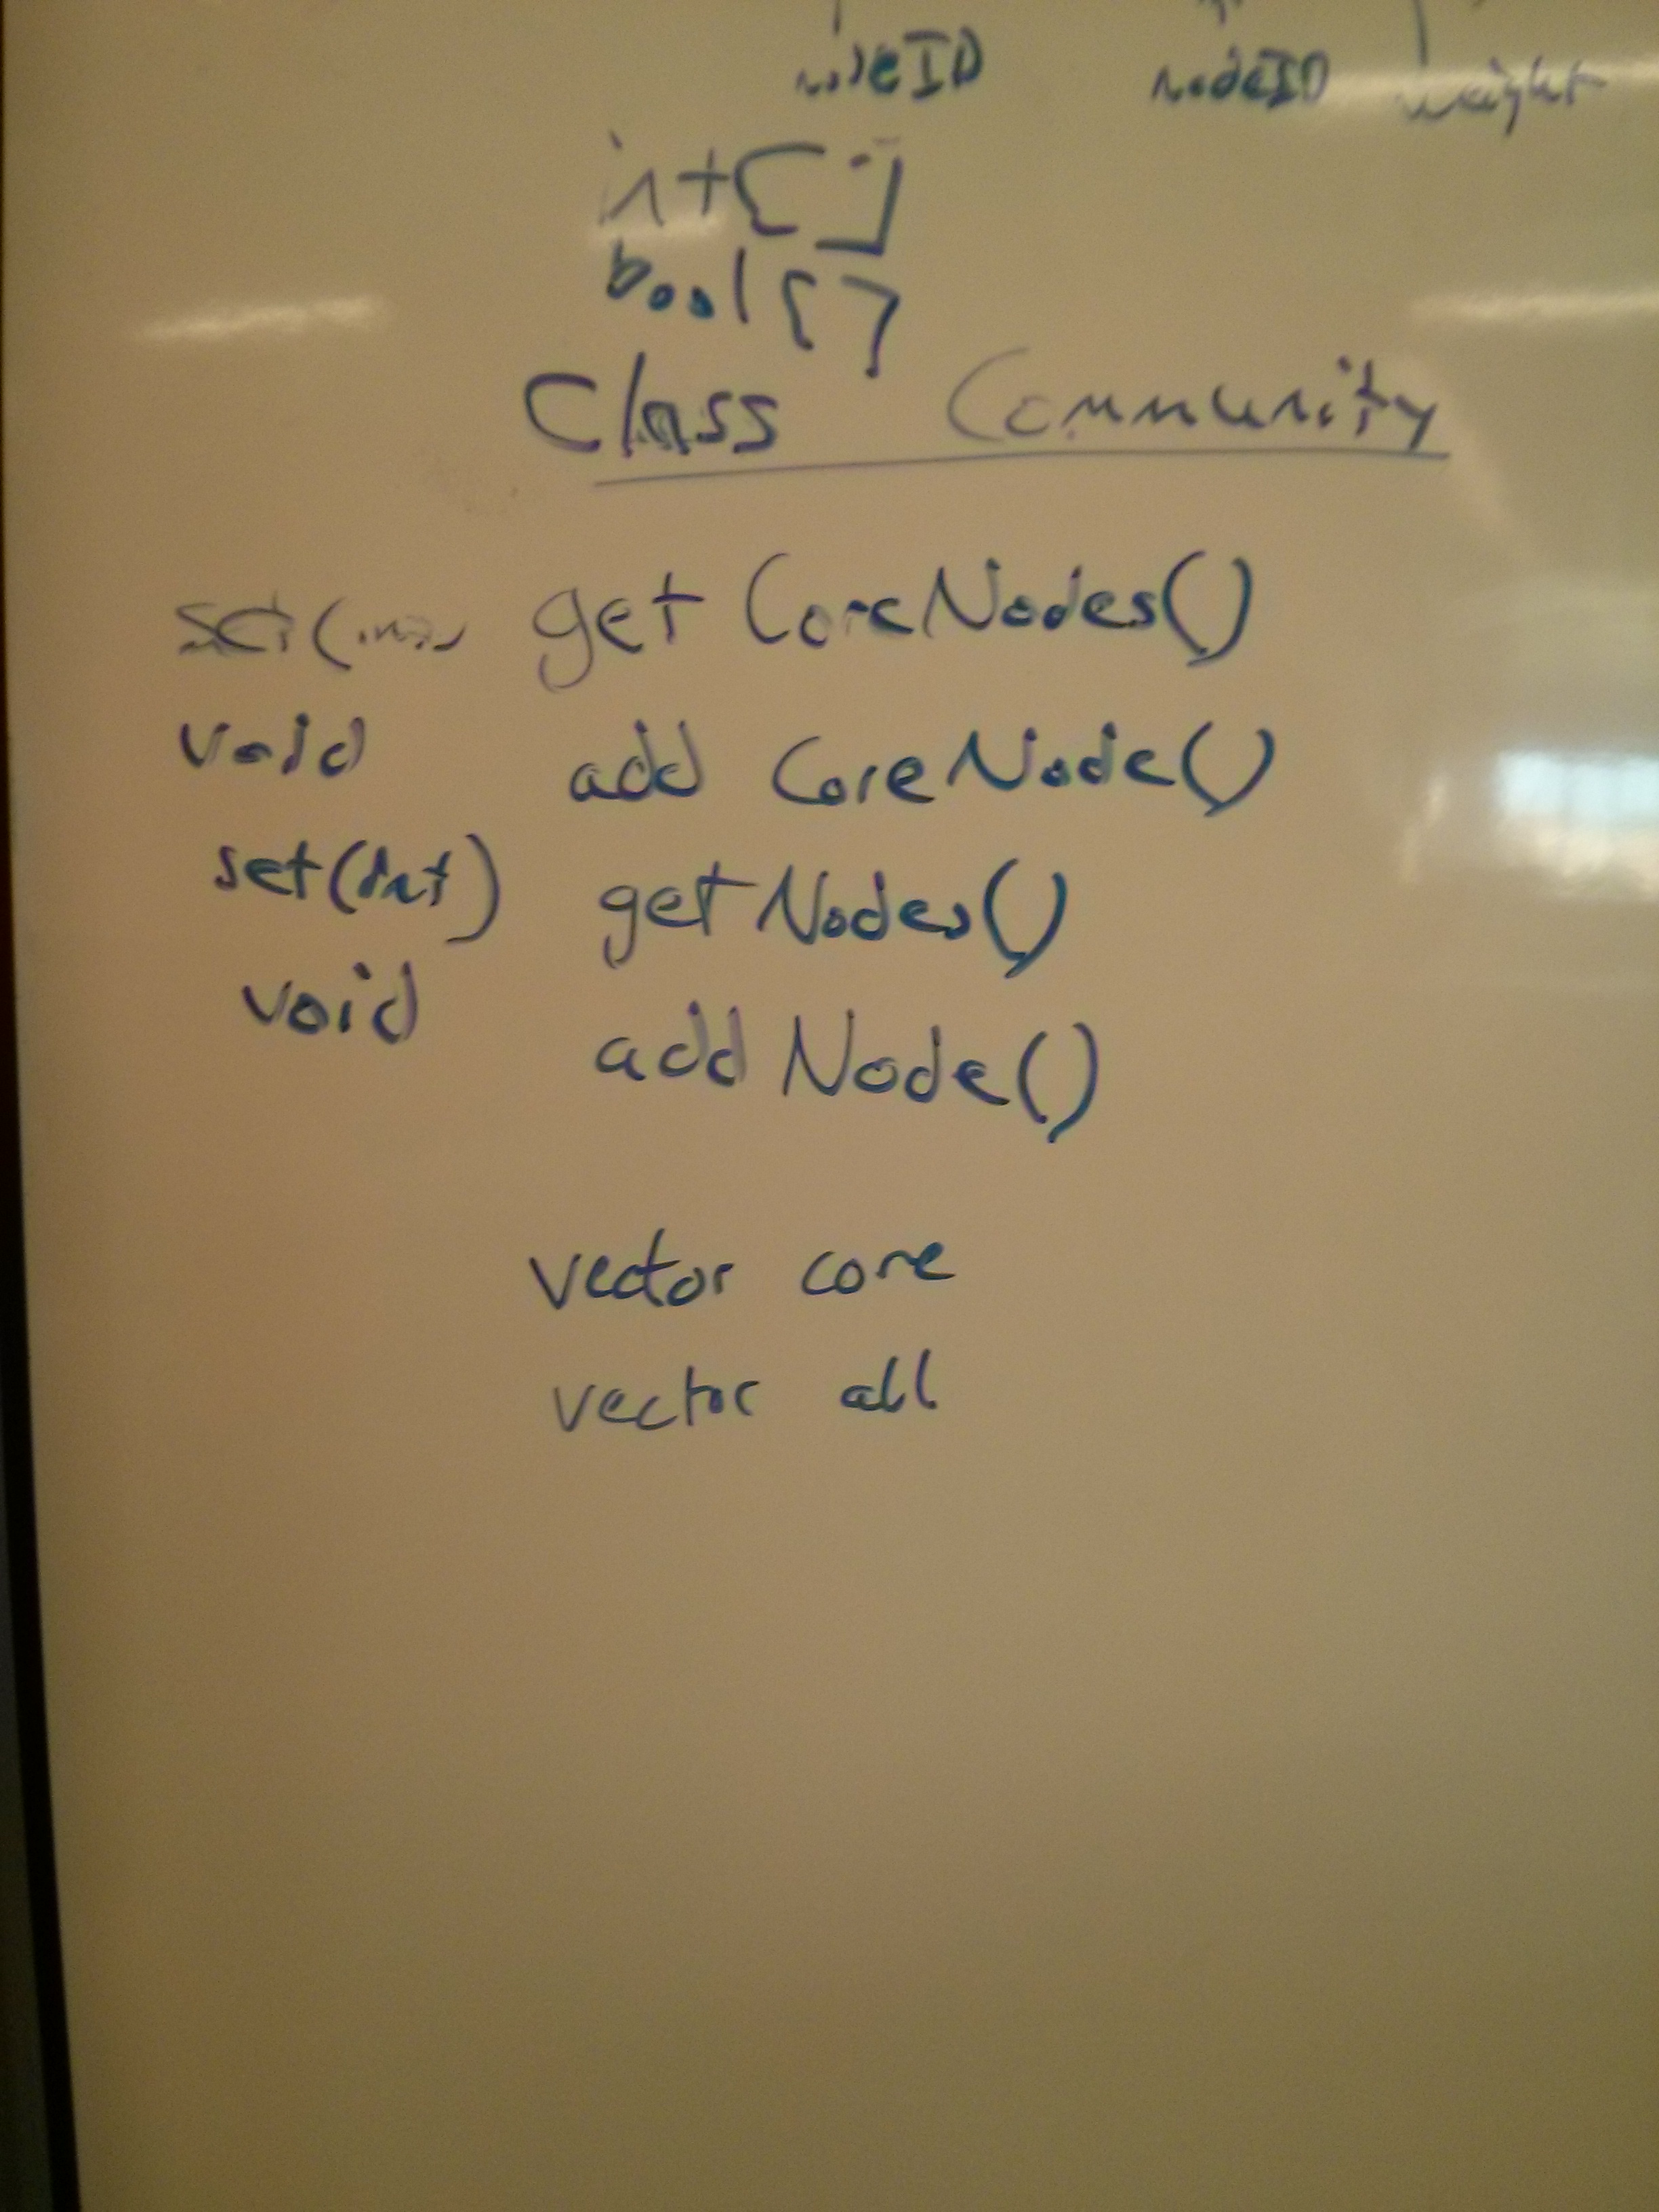 nodeID nodeID weight
int[]
bool[]
Class Community
set( getCoreNodes()
void addCoreNode()
set(int) getNodes()
void addNode()
vector core
vector all